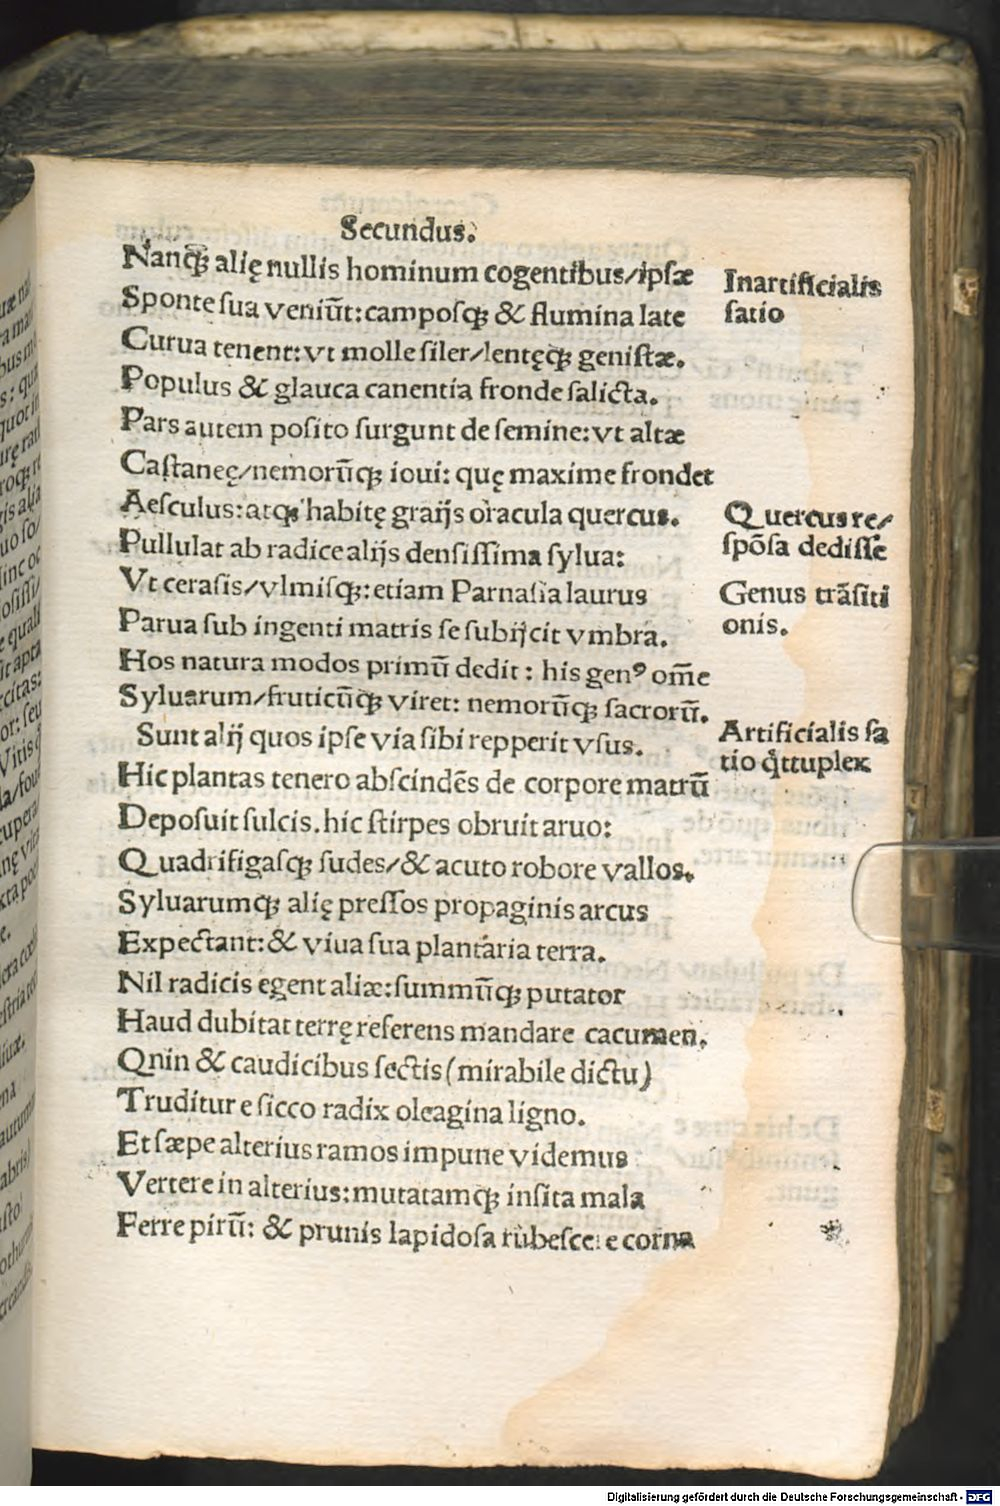 Secundus.
Nanqꝫ alię nullis hominum cogentibus/ipsæ
Sponte sua veniūt:camposqꝫ & flumina late
Curua tenent:vt molle siler/lentęqꝫ genistæ.
Populus & glauca canentia fronde salicta.
Pars autem posito surgunt de semine:vt altæ
Castaneę/nemorūqꝫ ioui: quę maxime frondet
Aesculus:atqꝫ habitę graijs oracula quercus.
Pullulat ab radice alijs densissima sylua:
Vt cerasis/vlmisqꝫ:etiam Parnasia laurus
Parua sub ingenti matris se subijcit vmbra.
Hos natura modos primū dedit: his genꝰ om̄e
Syluarum/fruticūqꝫ viret: nemorūqꝫ sacrorū.
Sunt alij quos ipse via sibi repperit vsus.
Hic plantas tenero abscindēs de corpore matrū
Deposuit sulcis.hic stirpes obruit aruo:
Quadrifigasqꝫ sudes/& acuto robore vallos.
Syluarumqꝫ alię pressos propaginis arcus
Expectant:& viua sua plantaria terra.
Nil radicis egent aliæ:summūqꝫ putator
Haud dubitat terrę referens mandare cacumen.
Qnin & caudicibus sectis (mirabile dictu)
Truditur e sicco radix oleagina ligno.
Et sæpe alterius ramos impune videmus
Vertere in alterius:mutatamqꝫ insita mala
Ferre pirū: & prunis lapidosa rubescere corna
Inartificialis
satio
Quercus re/
spōsa dedisse
Genus trāsiti
onis.
Artificialis sa
tio q̄ttuplex
Digitalisierung gefördert durch die Deutsche Forschungsgemeinschaft - DFG